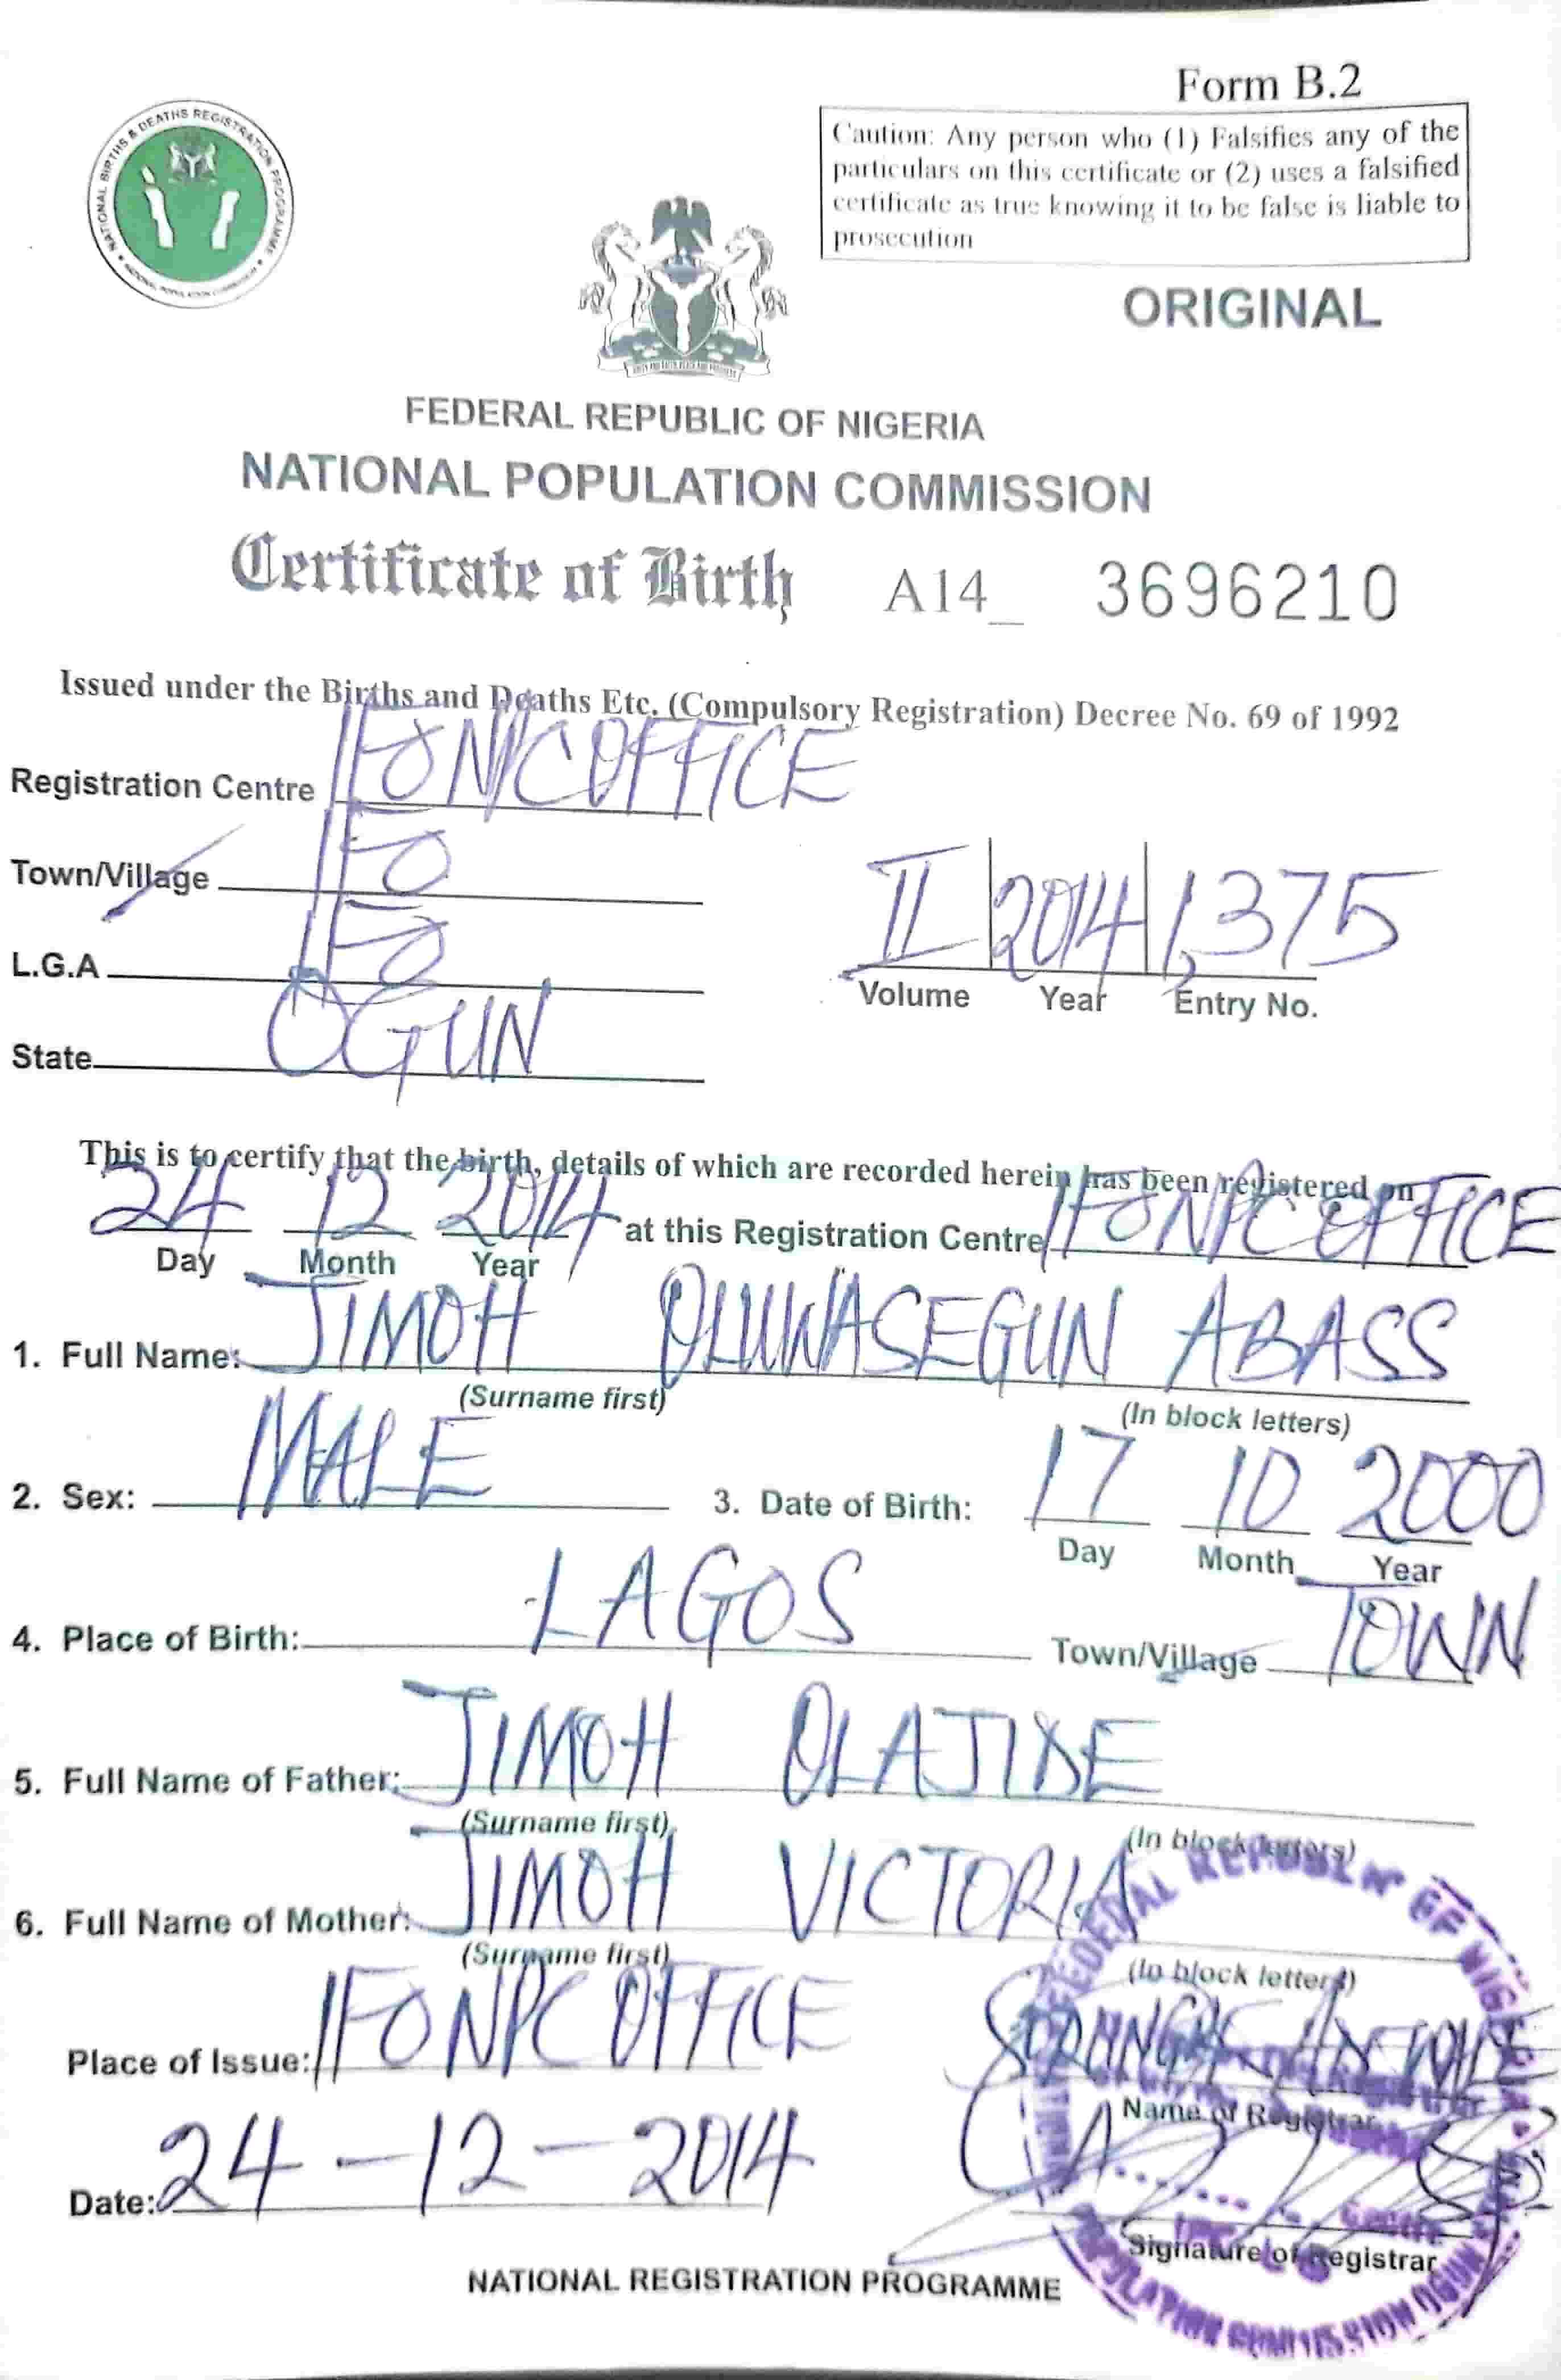 Form B.2
NATIONAL BIRTHS & DEATHS REGISTRATION PROGRAMME
Caution: Any person who (1) Falsifies any of the
particulars on this certificate or (2) uses a falsified
certificate as true knowing it to be false is liable to
prosecution
ORIGINAL
FEDERAL REPUBLIC OF NIGERIA
NATIONAL POPULATION COMMISSION
Certificate of Birth A14_ 3696210
Issued under the Births and Deaths Etc. (Compulsory Registration) Decree No. 69 of 1992
Registration Centre IFO NPC OFFICE
Town/Village IFO
L.G.A IFO
II 2014 1,375
Volume Year Entry No.
State OGUN
This is to certify that the birth, details of which are recorded herein has been registered on
24 12 2014 at this Registration Centre IFO NPC OFFICE
Day Month Year
1. Full Name: JIMOH OLUWASEGUN ABASS
(Surname first) (In block letters)
2. Sex: MALE 3. Date of Birth: 17 10 2000
Day Month Year
4. Place of Birth: LAGOS Town/Village TOWN
5. Full Name of Father: JIMOH OLAJIDE
(Surname first) (In block letters)
6. Full Name of Mother: JIMOH VICTORIA
(Surname first) (In block letters)
Place of Issue: IFO NPC OFFICE
Name of Registrar
Date: 24-12-2014
Signature of Registrar
NATIONAL REGISTRATION PROGRAMME
FEDERAL REPUBLIC OF NIGERIA
POPULATION COMMISSION OGUN